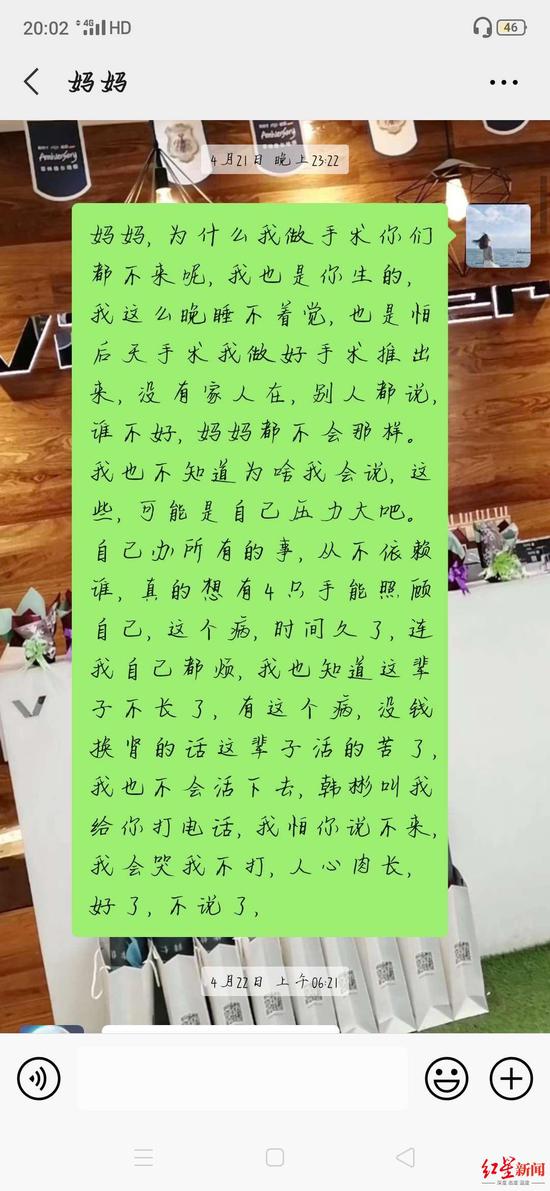 20:02
4G
HD
46
妈妈
Anniversary
Anniversary
4月21日 晚上23:22
妈妈, 为什么我做手术你们
都不来呢, 我也是你生的,
我这么晚睡不着觉, 也是怕
后天手术我做好手术推出
来, 没有家人在, 别人都说,
谁不好, 妈妈都不会那样。
我也不知道为啥我会说, 这
些, 可能是自己压力大吧。
自己办所有的事, 从不依赖
谁, 真的想有4只手能照顾
自己, 这个病, 时间久了, 连
我自己都烦, 我也知道这辈
子不长了, 有这个病, 没钱
换肾的话这辈子活的苦了,
我也不会活下去, 韩彬叫我
给你打电话, 我怕你说不来,
我会哭我不打, 人心肉长,
好了, 不说了,
4月22日 上午06:21
红星新闻
深度 态度 温度